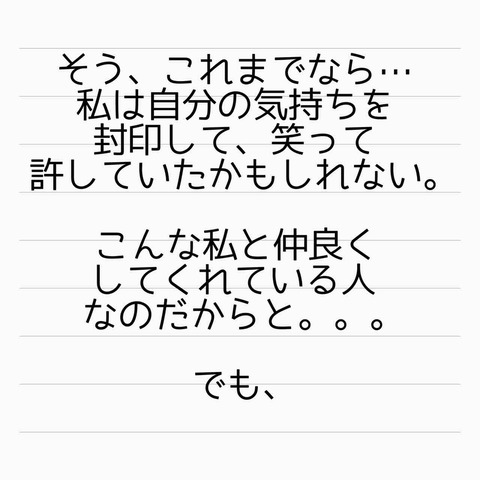 そう、これまでなら…
私は自分の気持ちを
封印して、笑って
許していたかもしれない。
こんな私と仲良く
してくれている人
なのだからと。。。
でも、